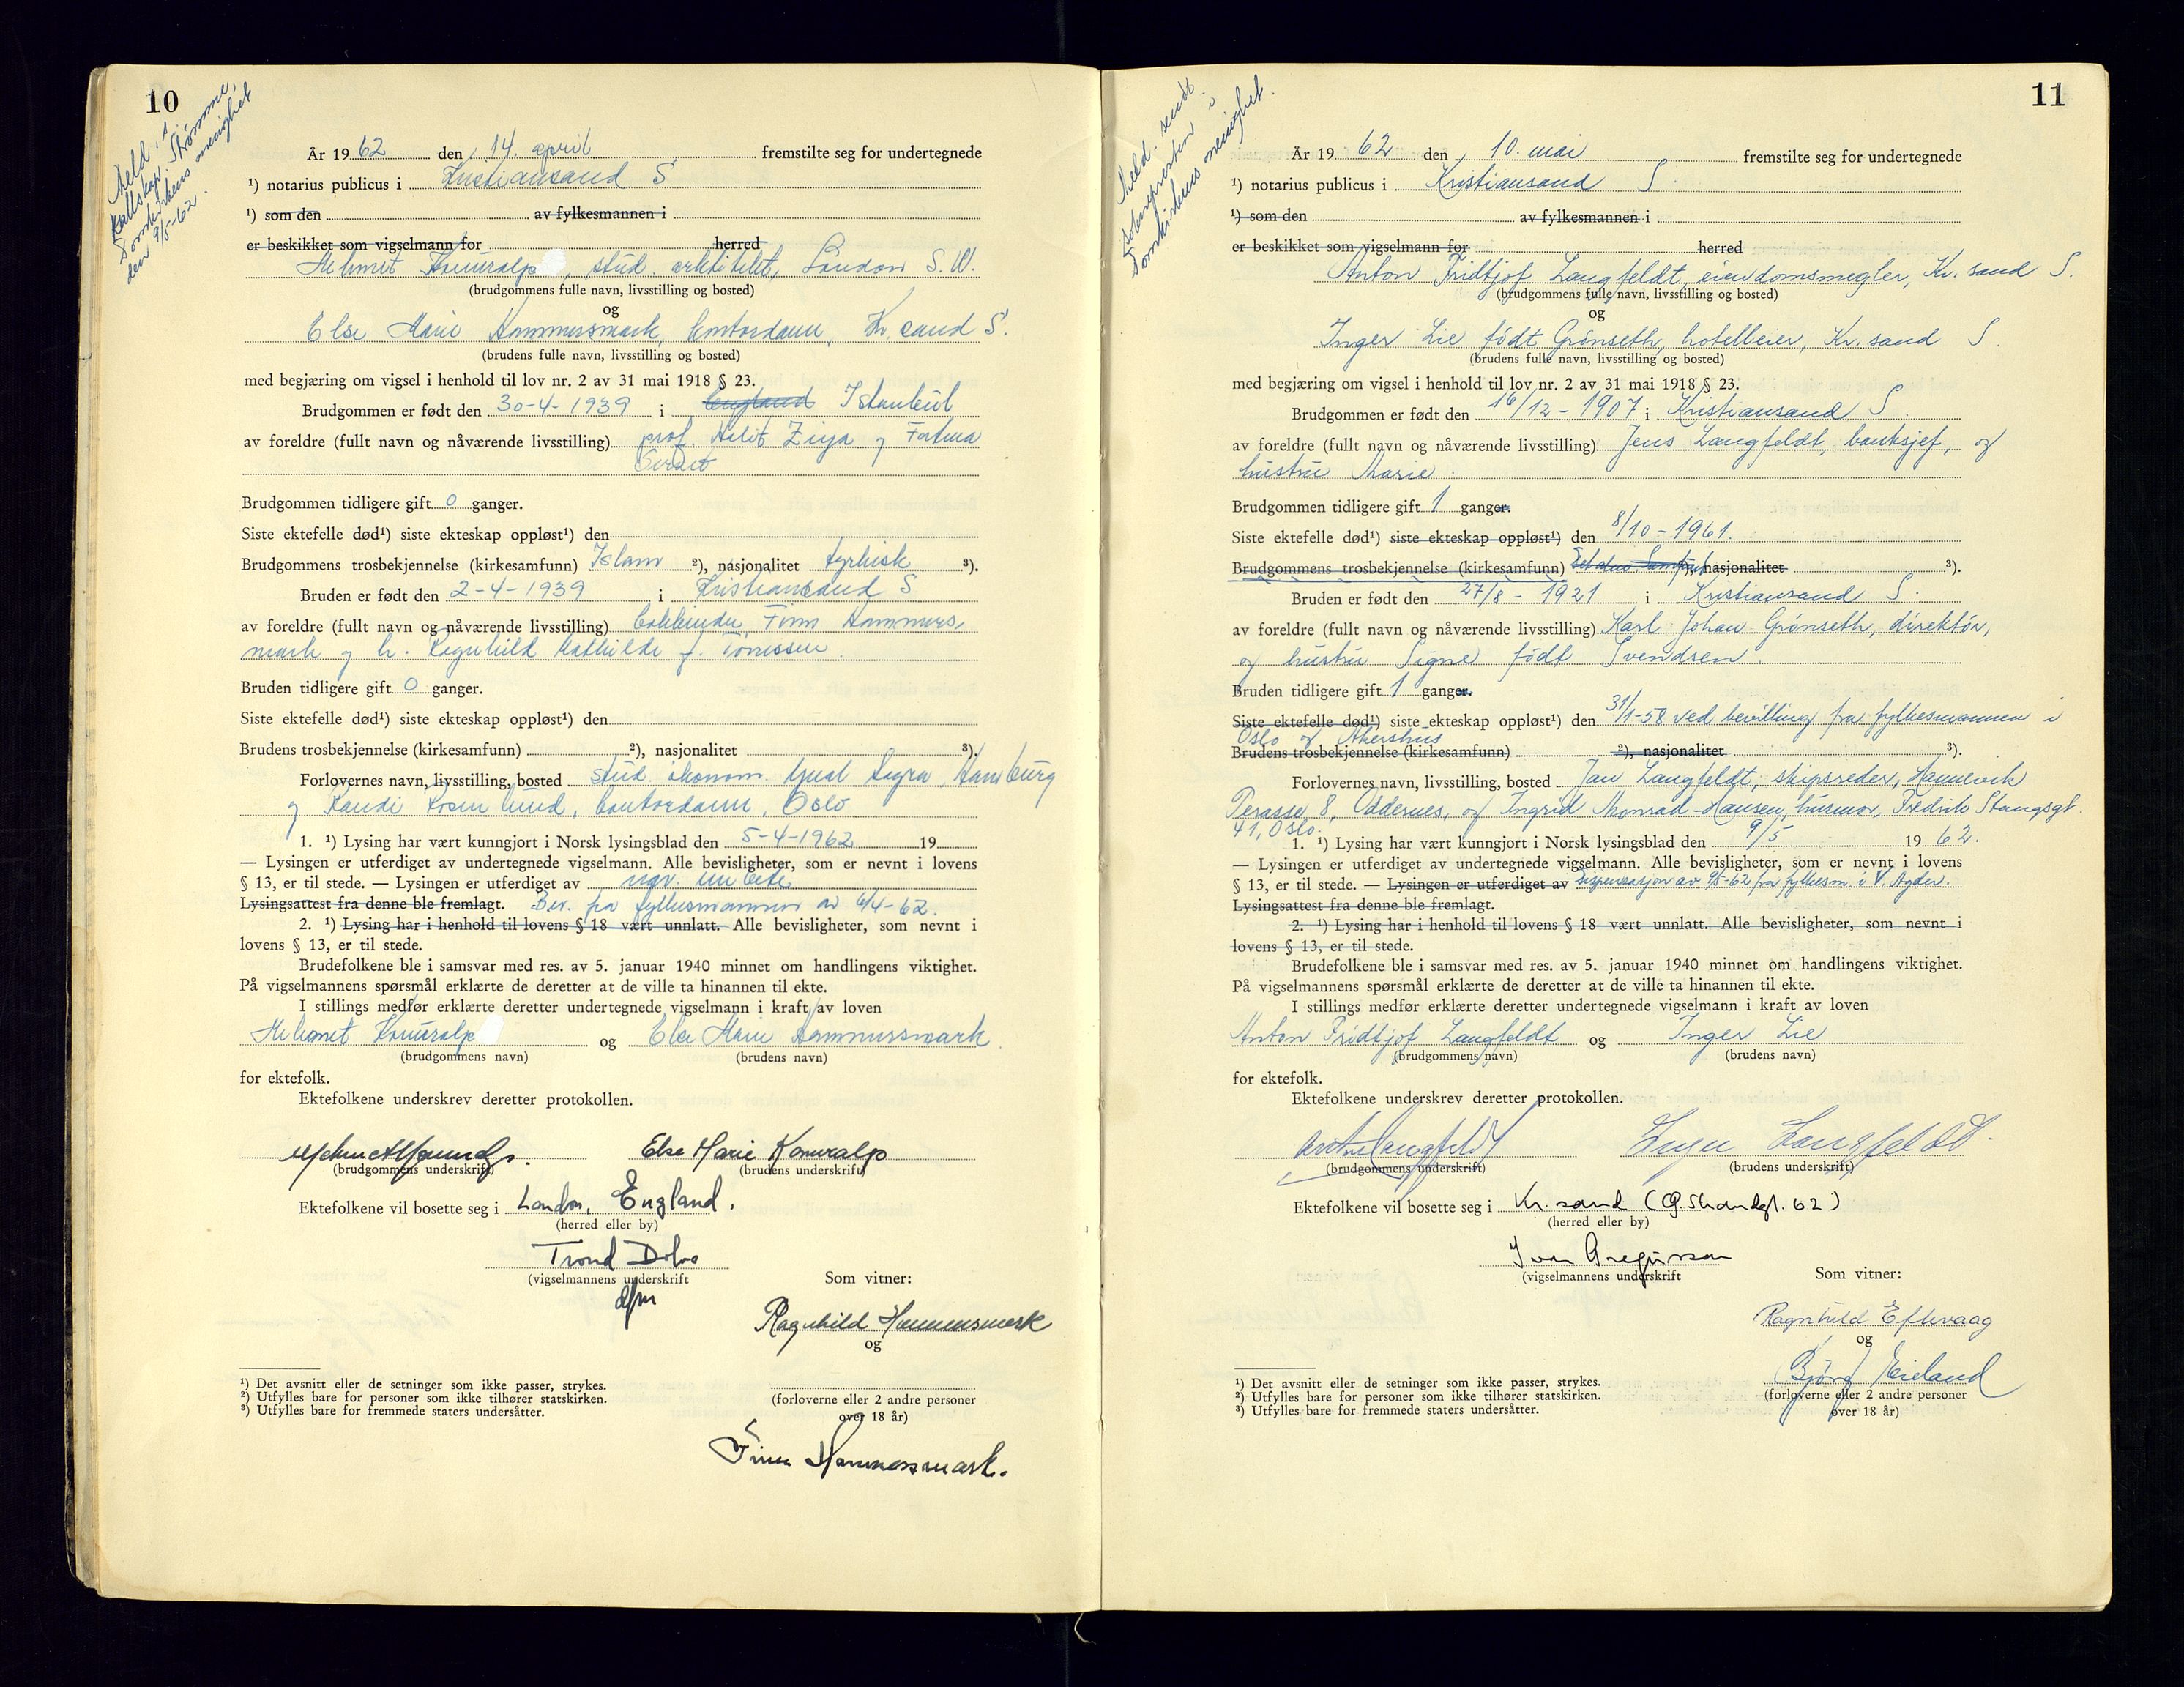 10
Meld. t.
Kallskap. Strømme,
Domkirkens menighet
den 9/5-62.
År 1962 den 14 april fremstilte seg for undertegnede
¹) notarius publicus i Kristiansand S
¹) som den av fylkesmannen i
er beskikket som vigselmann for herred
Mehmet Konuralp, stud. arkitekt, London S.W.
(brudgommens fulle navn, livsstilling og bosted)
og
Else Marie Hammersmark, kontordame, Kr.sand S.
(brudens fulle navn, livsstilling og bosted)
med begjæring om vigsel i henhold til lov nr. 2 av 31 mai 1918 § 23.
Brudgommen er født den 30-4-1939 i England Istanbul
av foreldre (fullt navn og nåværende livsstilling) prof. Halit Ziya og Fatma
Brudgommen tidligere gift 0 ganger.
Siste ektefelle død¹) siste ekteskap oppløst¹) den
Brudgommens trosbekjennelse (kirkesamfunn) Islam ²), nasjonalitet tyrkisk ³).
Bruden er født den 2-4-1939 i Kristiansand S
av foreldre (fullt navn og nåværende livsstilling) Finn Hammers-
mark og h. Ragnhild Mathilde f. Tønnessen.
Bruden tidligere gift 0 ganger.
Siste ektefelle død¹) siste ekteskap oppløst¹) den
Brudens trosbekjennelse (kirkesamfunn) ²), nasjonalitet ³).
Forlovernes navn, livsstilling, bosted stud. økonom. Hamburg
og Randi Rosenlund, kontordame, Oslo
1. ¹) Lysing har vært kunngjort i Norsk lysingsblad den 5-4-1962 19
— Lysingen er utferdiget av undertegnede vigselmann. Alle bevisligheter, som er nevnt i lovens
§ 13, er til stede. — Lysingen er utferdiget av
Lysingsattest fra denne ble fremlagt. Bev. fra fylkesmannen av 6/4-62.
2. ¹) Lysing har i henhold til lovens § 18 vært unnlatt. Alle bevisligheter, som nevnt i
lovens § 13, er til stede.
Brudefolkene ble i samsvar med res. av 5. januar 1940 minnet om handlingens viktighet.
På vigselmannens spørsmål erklærte de deretter at de ville ta hinannen til ekte.
I stillings medfør erklærte deretter undertegnede vigselmann i kraft av loven
Mehmet Konuralp og Else Marie Hammersmark
(brudgommens navn) (brudens navn)
for ektefolk.
Ektefolkene underskrev deretter protokollen.
Else Marie Konuralp
(brudgommens underskrift) (brudens underskrift)
Ektefolkene vil bosette seg i London, England.
(herred eller by)
Trond Dolva
(vigselmannens underskrift Som vitner:
dfm
Ragnhild Hammersmark
og
¹) Det avsnitt eller de setninger som ikke passer, strykes.
²) Utfylles bare for personer som ikke tilhører statskirken.
³) Utfylles bare for fremmede staters undersåtter.
(forloverne eller 2 andre personer
over 18 år)
Finn Hammersmark.
11
Meld. sendt
soknepresten i
Domkirkens menighet.
År 1962 den 10. mai fremstilte seg for undertegnede
¹) notarius publicus i Kristiansand S.
¹) som den av fylkesmannen i
er beskikket som vigselmann for herred
Anton Fridtjof Langfeldt, eiendomsmegler, Kr.sand S.
(brudgommens fulle navn, livsstilling og bosted)
og
Inger Lie født Grønseth, hotelleier, Kr.sand S.
(brudens fulle navn, livsstilling og bosted)
med begjæring om vigsel i henhold til lov nr. 2 av 31 mai 1918 § 23.
Brudgommen er født den 16/12-1907 i Kristiansand S.
av foreldre (fullt navn og nåværende livsstilling) Jens Langfeldt, banksjef, og
hustru Marie.
Brudgommen tidligere gift 1 ganger.
Siste ektefelle død¹) siste ekteskap oppløst¹) den 8/10-1961.
Brudgommens trosbekjennelse (kirkesamfunn) ²), nasjonalitet ³).
Bruden er født den 27/8-1921 i Kristiansand S.
av foreldre (fullt navn og nåværende livsstilling) Karl Johan Grønseth, direktør,
og hustru Signe født Svendsen.
Bruden tidligere gift 1 ganger.
Siste ektefelle død¹) siste ekteskap oppløst¹) den 31/1-58 ved bevilling fra fylkesmannen i
Oslo og Akershus
Brudens trosbekjennelse (kirkesamfunn) ²), nasjonalitet ³).
Forlovernes navn, livsstilling, bosted Jan Langfeldt, skipsreder, Hannevik
Terasse 8, Oddernes, og Ingrid Monrad-Hansen, husmor, Fredrik Stangsgt.
41, Oslo.
1. ¹) Lysing har vært kunngjort i Norsk lysingsblad den 9/5 1962.
— Lysingen er utferdiget av undertegnede vigselmann. Alle bevisligheter, som er nevnt i lovens
§ 13, er til stede. — Lysingen er utferdiget av Dispensasjon av 9/5-62 fra fylkesm. i V. Agder.
Lysingsattest fra denne ble fremlagt.
2. ¹) Lysing har i henhold til lovens § 18 vært unnlatt. Alle bevisligheter, som nevnt i
lovens § 13, er til stede.
Brudefolkene ble i samsvar med res. av 5. januar 1940 minnet om handlingens viktighet.
På vigselmannens spørsmål erklærte de deretter at de ville ta hinannen til ekte.
I stillings medfør erklærte deretter undertegnede vigselmann i kraft av loven
Anton Fridtjof Langfeldt og Inger Lie
(brudgommens navn) (brudens navn)
for ektefolk.
Ektefolkene underskrev deretter protokollen.
Anton Langfeldt Inger Langfeldt.
(brudgommens underskrift) (brudens underskrift)
Ektefolkene vil bosette seg i Kr.sand (Ø. Strandgt. 62)
(herred eller by)
Ivar Gregersen
(vigselmannens underskrift Som vitner:
Ragnhild Eftevaag
og
Bjørg Eieland
¹) Det avsnitt eller de setninger som ikke passer, strykes.
²) Utfylles bare for personer som ikke tilhører statskirken.
³) Utfylles bare for fremmede staters undersåtter.
(forloverne eller 2 andre personer
over 18 år)